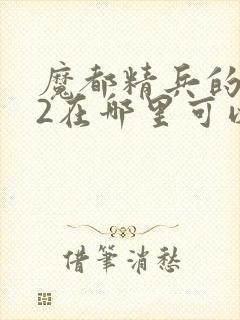 魔都精兵的
2在哪里可以
借筆消愁